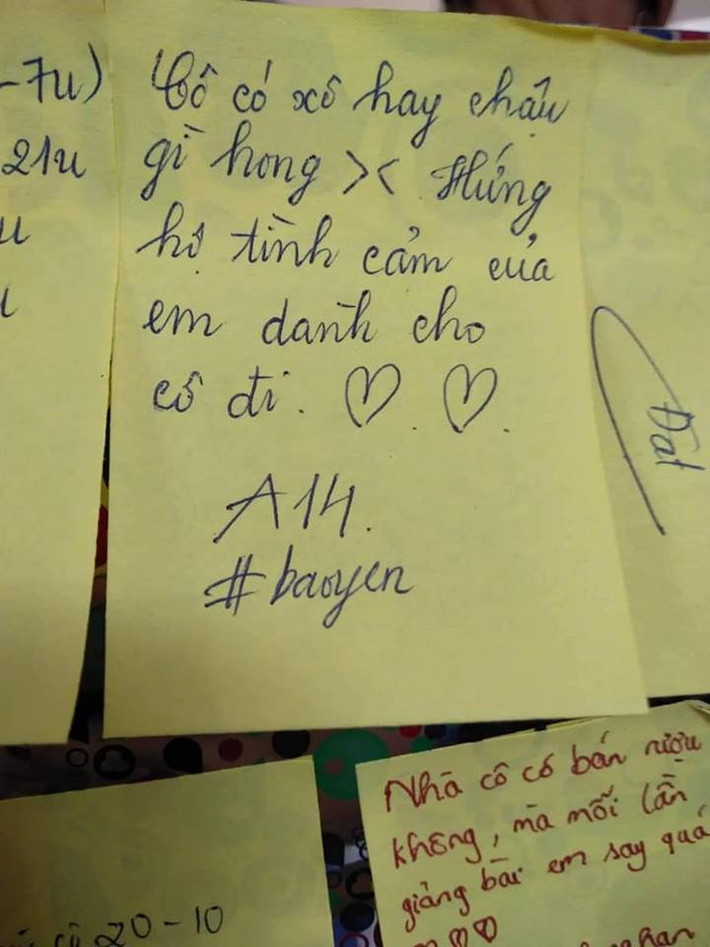 -7u)
21u
u
Cô có xô hay chậu
gì hong >< Hứng
hộ tình cảm của
em dành cho
cô đi. ♡ ♡.
A14.
#baoyen
Đạt
Nhà cô có bán rượu
không, mà mỗi lần
giảng bài em say quá
♡♡
20-10